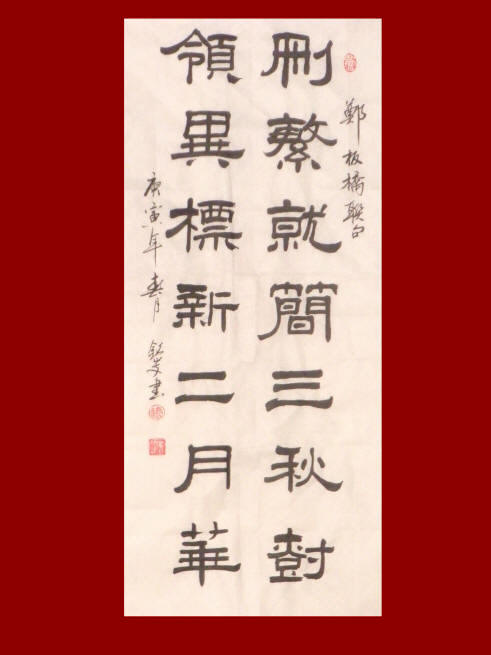 鄭板橋聯句
刪繁就簡三秋樹
領異標新二月華
庚寅年春月 書